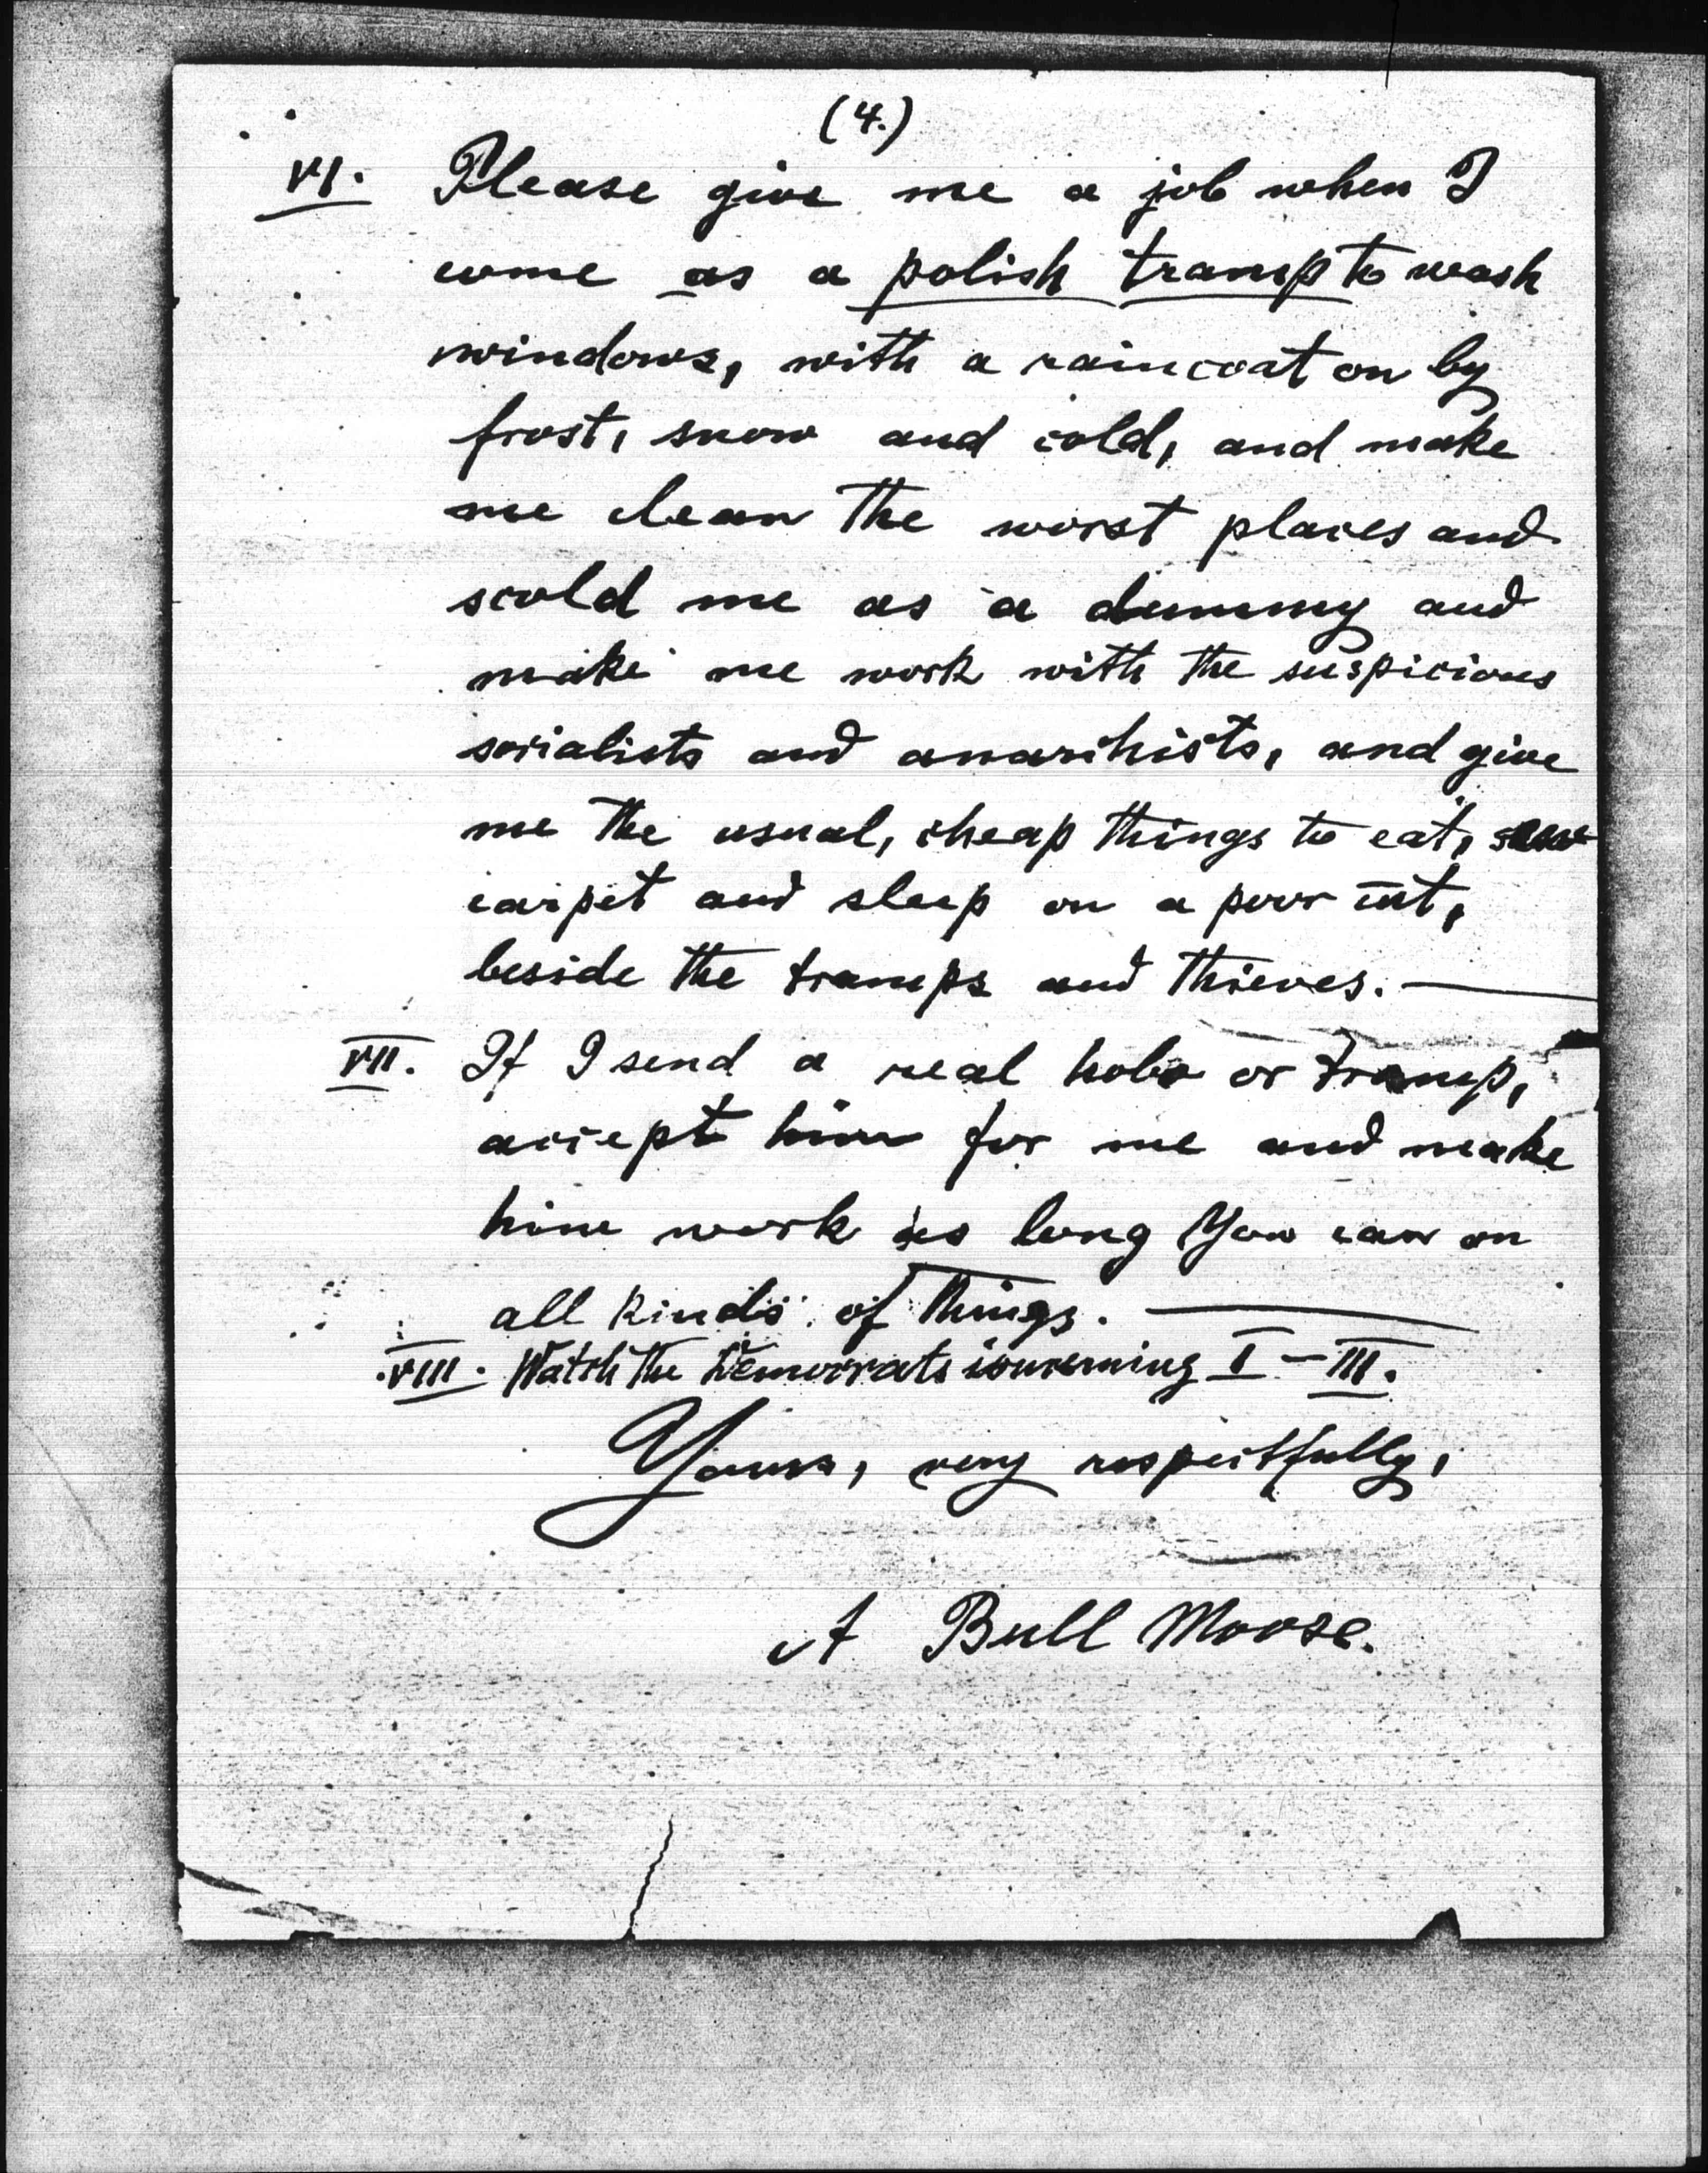 (4.)
VI. Please give me a job when I
come as a polish tramp to wash
windows, with a raincoat on by
frost, snow and cold, and make
me clean the worst places and
scold me as a dummy and
make me work with the suspicious
socialists and anarchists, and give
me the usual, cheap things to eat, sew
carpet and sleep on a poor cot,
beside the tramps and thieves. —
VII. If I send a real hobo or tramp,
accept him for me and make
him work as long You can on
all kinds of things. —
VIII. Watch the Democrats concerning I – III.
Yours, very respectfully,
A Bull Moose.